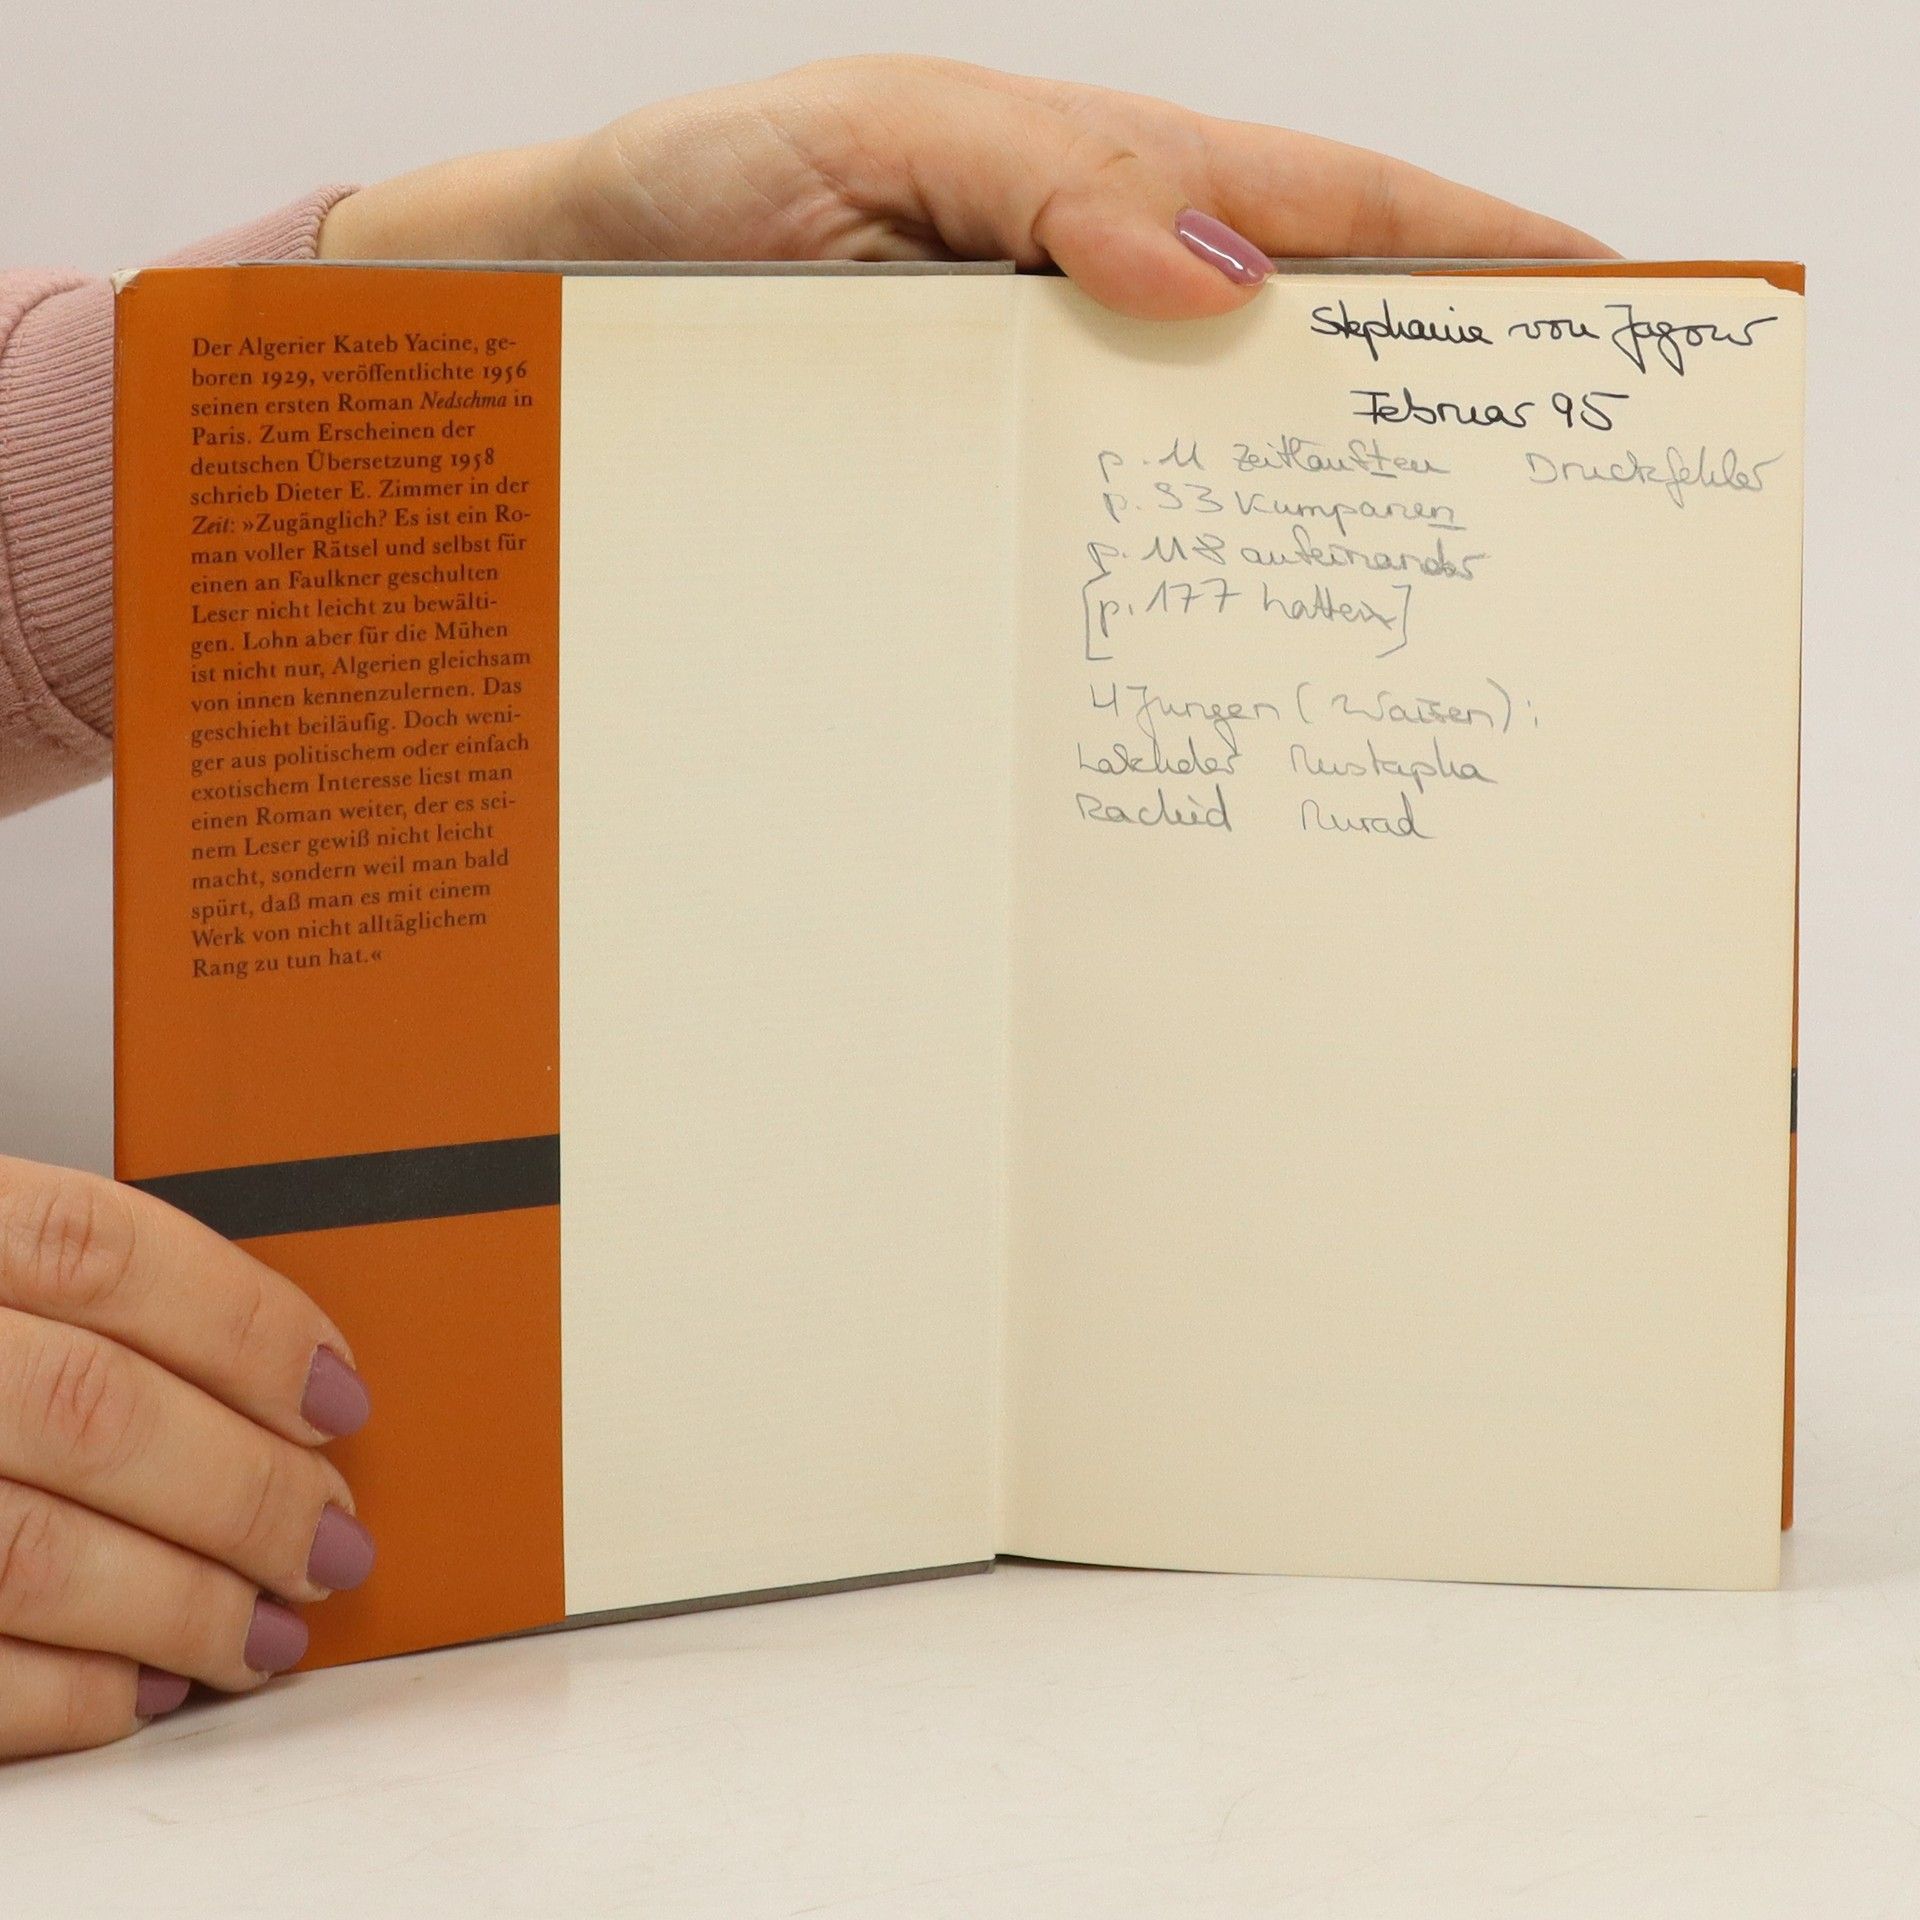 Der Algerier Kateb Yacine, ge-
boren 1929, veröffentlichte 1956
seinen ersten Roman Nedschma in
Paris. Zum Erscheinen der
deutschen Übersetzung 1958
schrieb Dieter E. Zimmer in der
Zeit: »Zugänglich? Es ist ein Ro-
man voller Rätsel und selbst für
einen an Faulkner geschulten
Leser nicht leicht zu bewälti-
gen. Lohn aber für die Mühen
ist nicht nur, Algerien gleichsam
von innen kennenzulernen. Das
geschieht beiläufig. Doch weni-
ger aus politischem oder einfach
exotischem Interesse liest man
einen Roman weiter, der es sei-
nem Leser gewiß nicht leicht
macht, sondern weil man bald
spürt, daß man es mit einem
Werk von nicht alltäglichem
Rang zu tun hat.«
Stephanie von Jagow
Februar 95
p. 11 Zeitläuften Druckfehler
p. 93 Kumpanen
p. 118 aufeinander
[p. 177 hatten]
4 Jungen (Waisen):
Lakhdar Mustapha
Rachid Murad